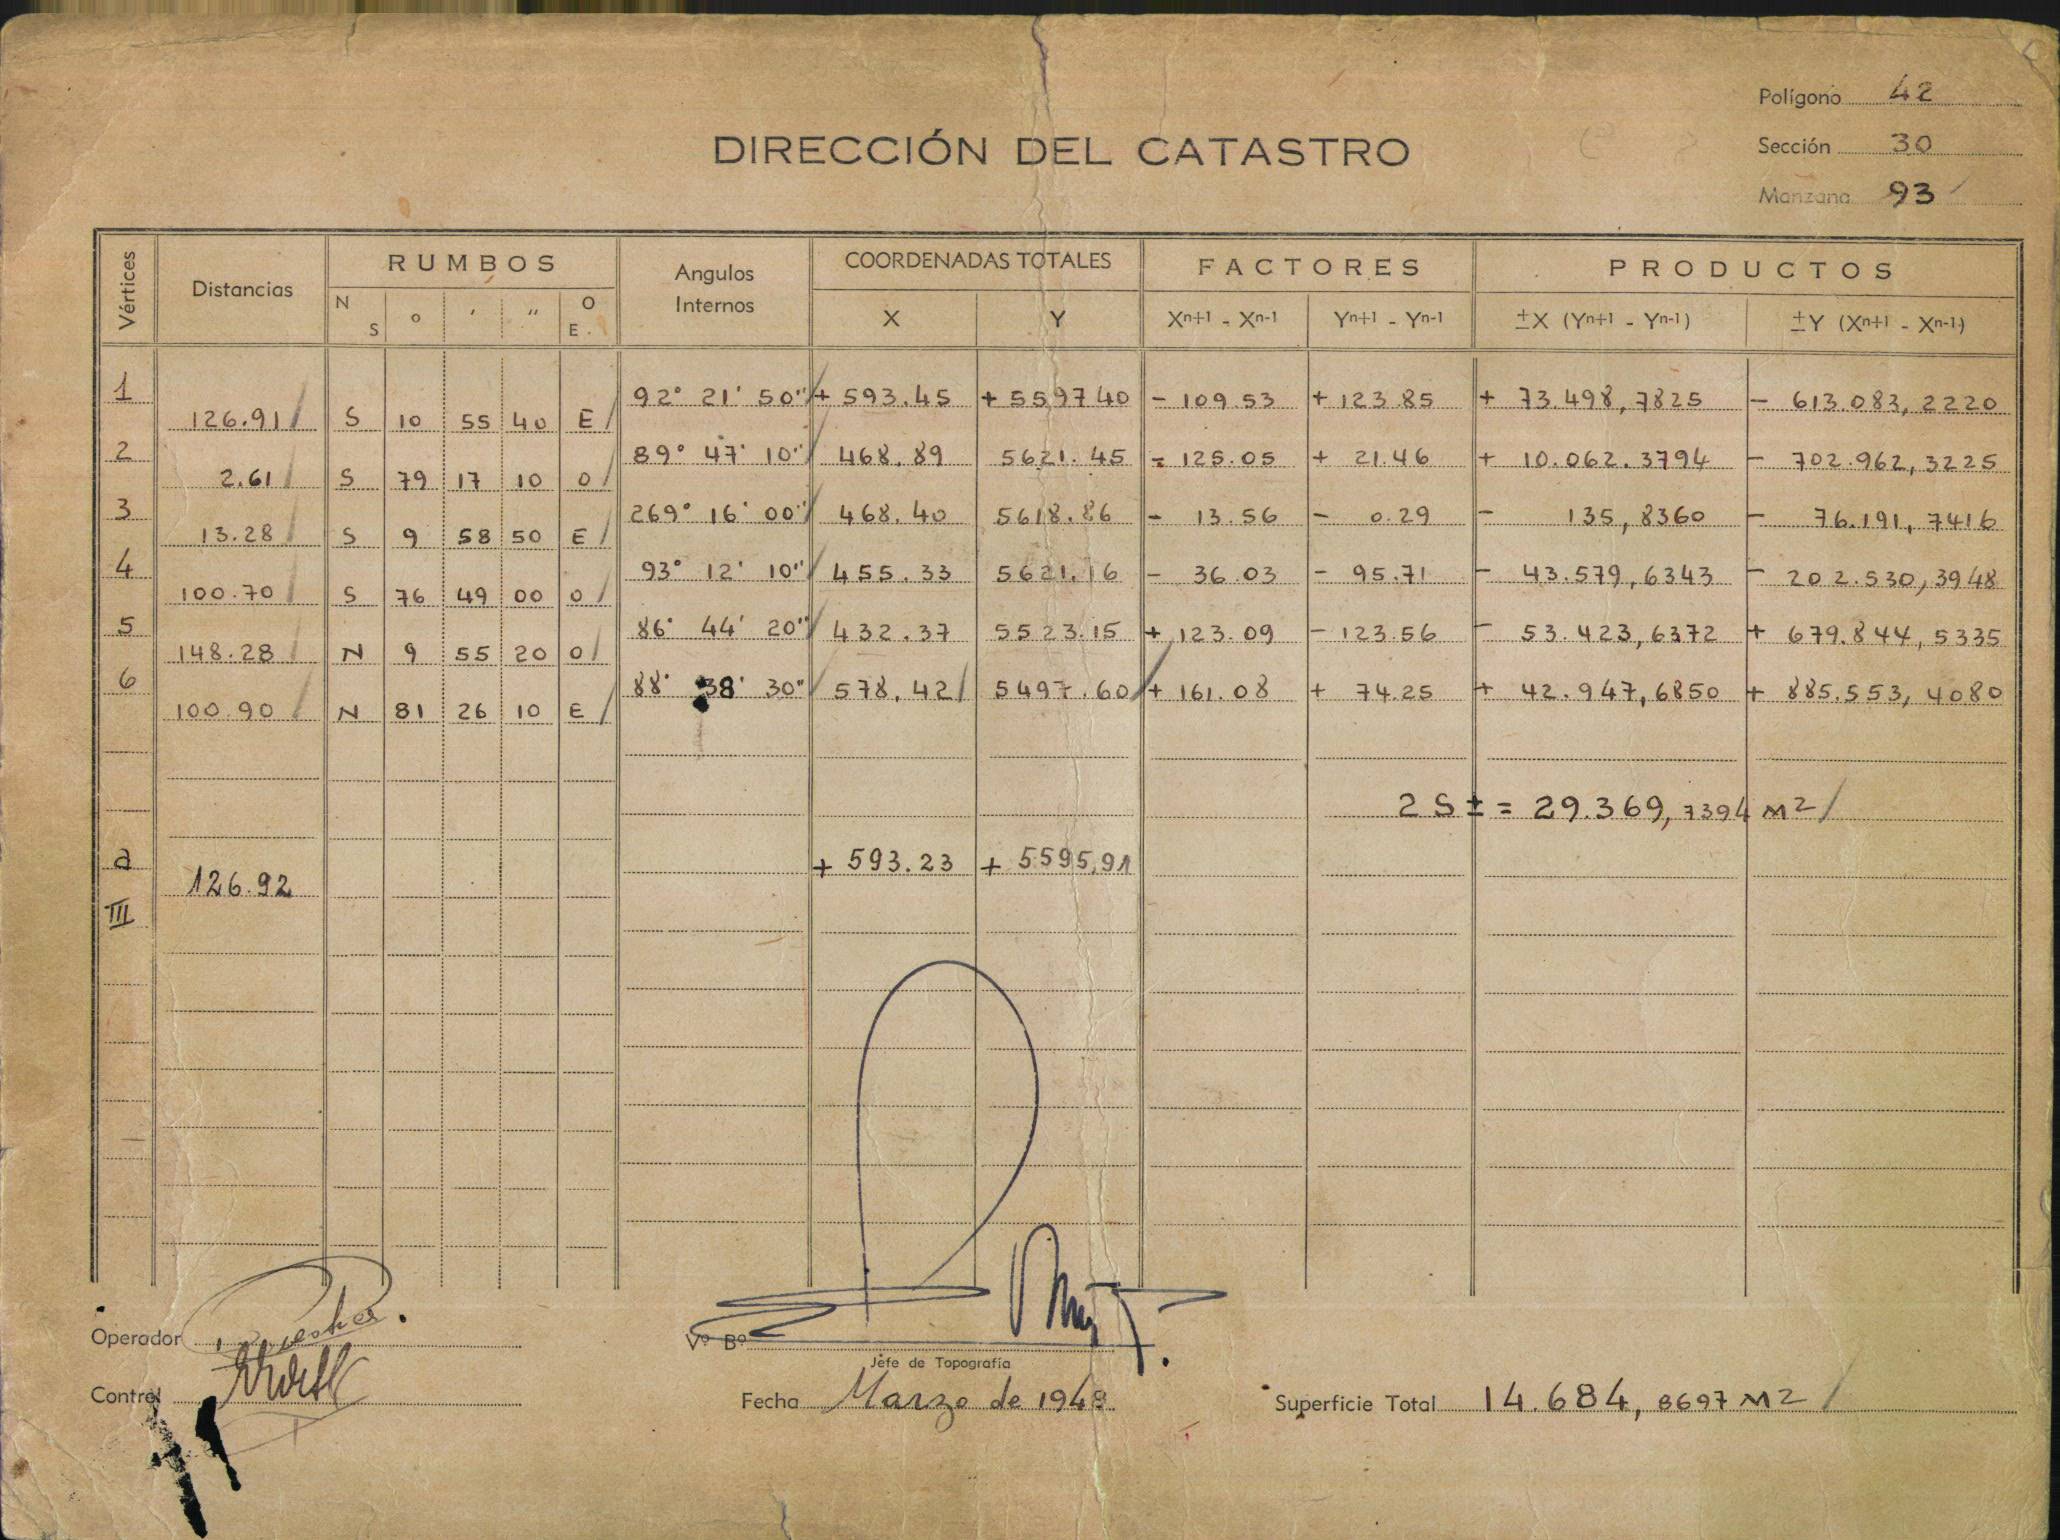 Polígono 42
DIRECCIÓN DEL CATASTRO
Sección 30
Manzana 93
Vértices Distancias RUMBOS Angulos Internos COORDENADAS TOTALES FACTORES PRODUCTOS
N S ° ′ ″ O E. X Y Xn+1 - Xn-1 Yn+1 - Yn-1 ±X (Yn+1 - Yn-1) ±Y (Xn+1 - Xn-1)
1 92° 21' 50" + 593.45 + 5597 40 - 109.53 + 123.85 + 73.498,7825 - 613.083,2220
126.91 S 10 55 40 E
2 89° 47' 10" 468.89 5621.45 - 125.05 + 21.46 + 10.062.3794 - 702.962,3225
2.61 S 79 17 10 O
3 269° 16' 00" 468.40 5618.86 - 13.56 - 0.29 - 135,8360 - 76.191,7416
13.28 S 9 58 50 E
4 93° 12' 10" 455.33 5621.16 - 36.03 - 95.71 - 43.579,6343 - 202.530,3948
100.70 S 76 49 00 O
5 86° 44' 20" 432.37 5523.15 + 123.09 - 123.56 - 53.423,6372 + 679.844,5335
148.28 N 9 55 20 O
6 88° 38' 30" 578.42 5497.60 + 161.08 + 74.25 + 42.947,6850 + 885.553,4080
100.90 N 81 26 10 E
2 S ± = 29.369,7394 M2
a + 593.23 + 5595,91
126.92
III
Operador
Vº Bº
Jefe de Topografía
Control
Fecha Marzo de 1948
Superficie Total 14.684,8697 M2